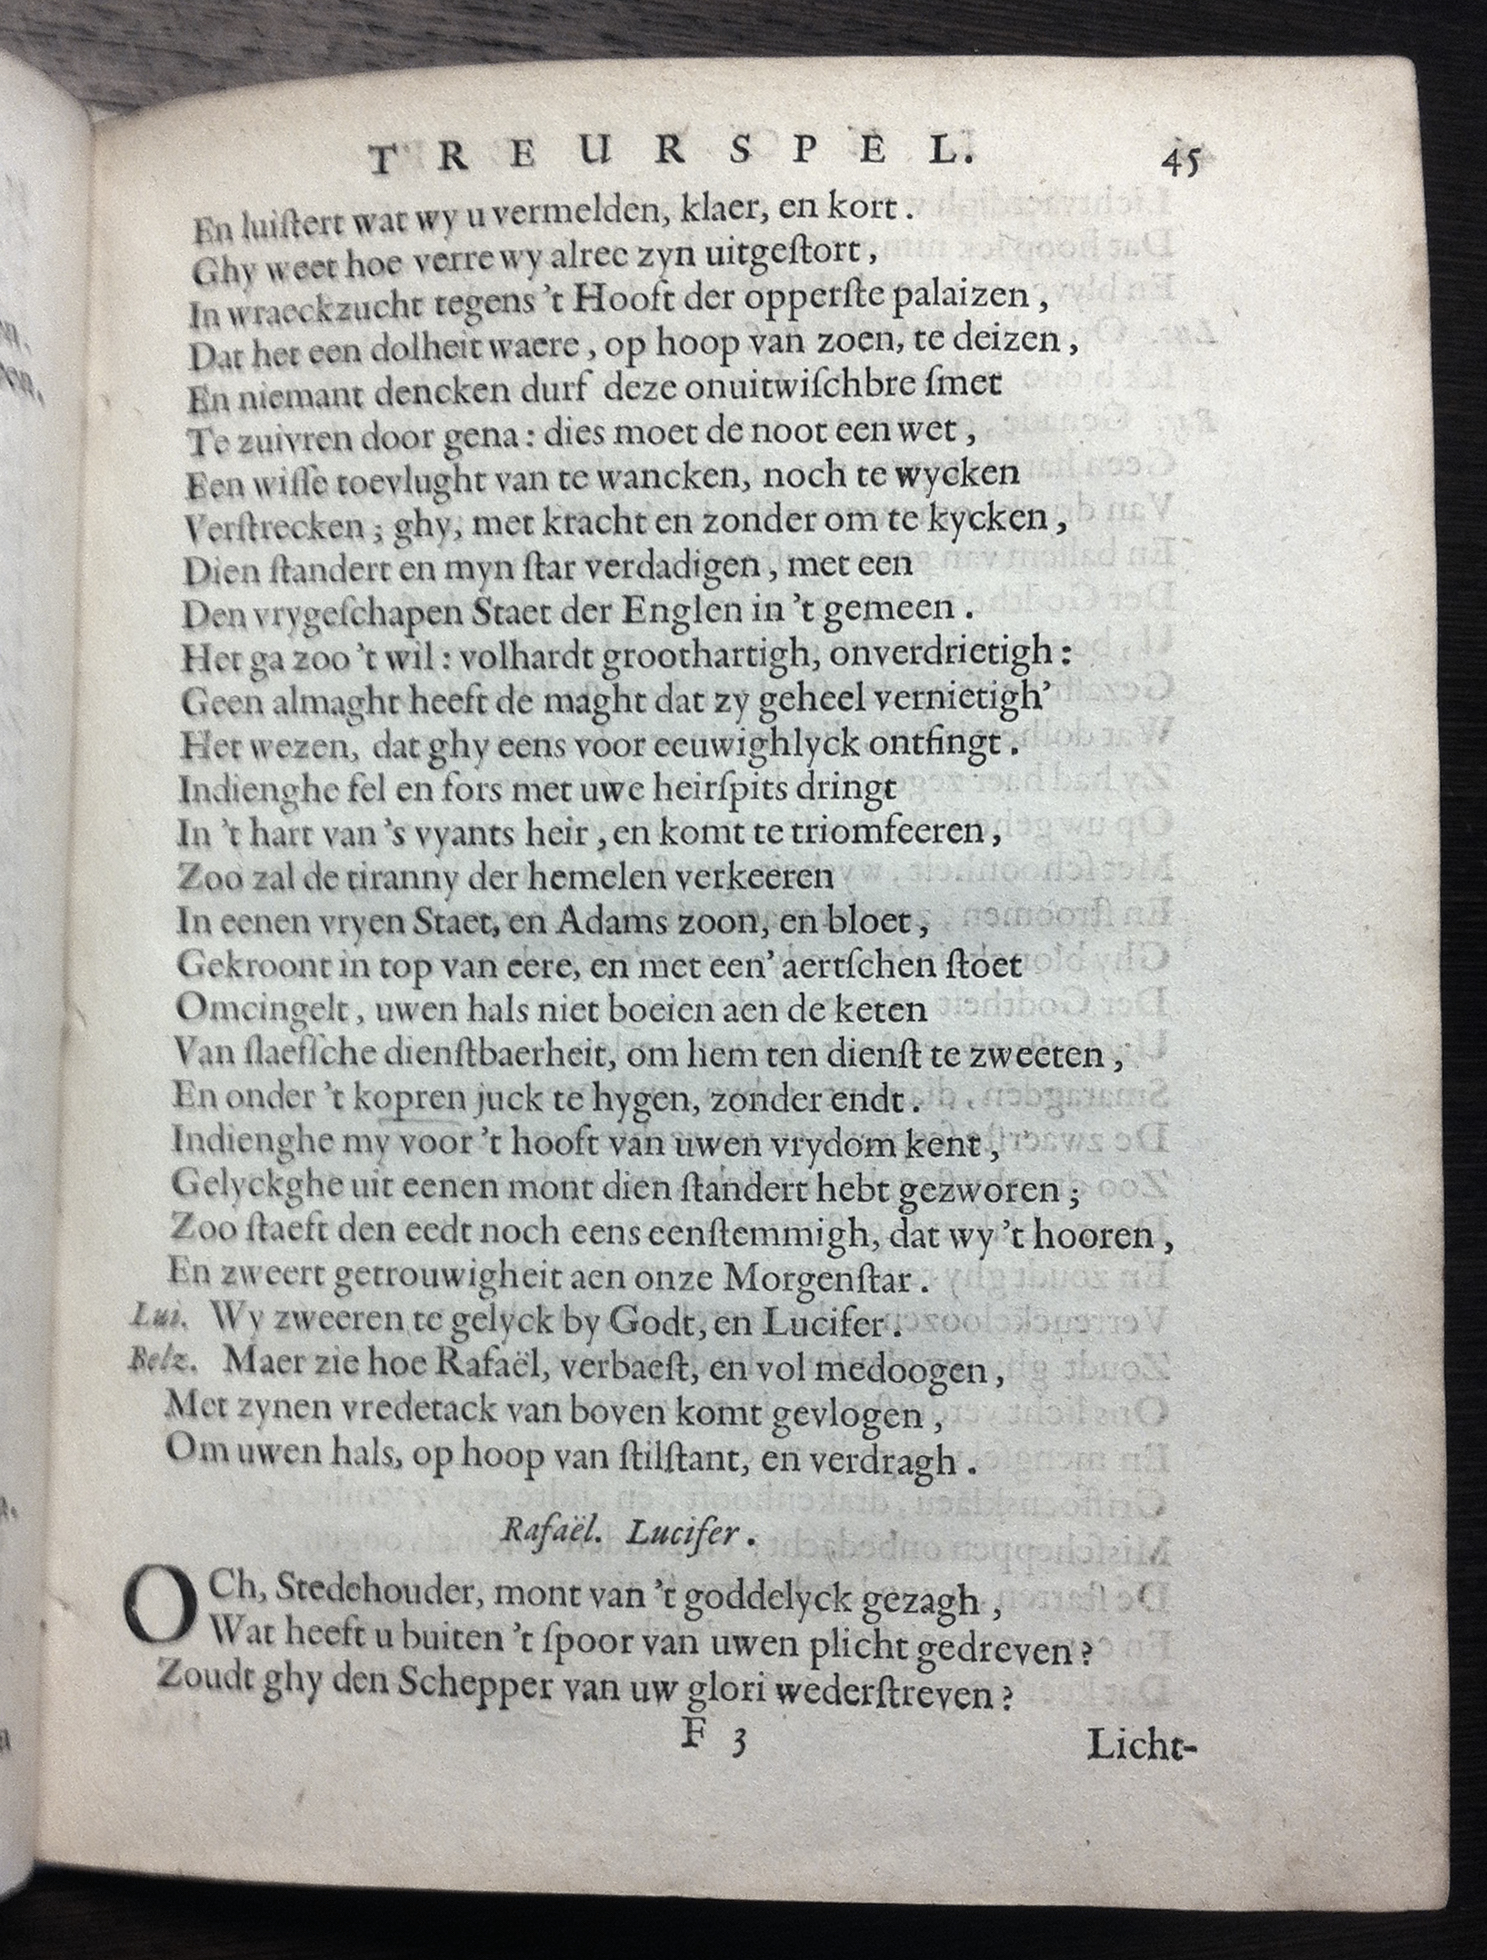 TREURSPEL. 45
En luiſtert wat wy u vermelden, klaer, en kort.
Ghy weet hoe verre wy alree zyn uitgeſtort,
In wraeckzucht tegens 't Hooft der opperſte palaizen,
Dat het een dolheit waere, op hoop van zoen, te deizen,
En niemant dencken durf deze onuitwiſchbre ſmet
Te zuivren door gena: dies moet de noot een wet,
Een wiſſe toevlught van te wancken, noch te wycken
Verſtrecken; ghy, met kracht en zonder om te kycken,
Dien ſtandert en myn ſtar verdadigen, met een
Den vrygeſchapen Staet der Englen in 't gemeen.
Het ga zoo 't wil: volhardt groothartigh, onverdrietigh:
Geen almaght heeft de maght dat zy geheel vernietigh'
Het wezen, dat ghy eens voor eeuwighlyck ontfingt.
Indienghe fel en fors met uwe heirſpits dringt
In 't hart van 's vyants heir, en komt te triomfeeren,
Zoo zal de tiranny der hemelen verkeeren
In eenen vryen Staet, en Adams zoon, en bloet,
Gekroont in top van eere, en met een' aertſchen ſtoet
Omcingelt, uwen hals niet boeien aen de keten
Van ſlaefſche dienſtbaerheit, om hem ten dienſt te zweeten,
En onder 't kopren juck te hygen, zonder endt.
Indienghe my voor 't hooft van uwen vrydom kent,
Gelyckghe uit eenen mont dien ſtandert hebt gezworen;
Zoo ſtaeft den eedt noch eens eenſtemmigh, dat wy 't hooren,
En zweert getrouwigheit aen onze Morgenſtar.
Lui. Wy zweeren te gelyck by Godt, en Lucifer.
Belz. Maer zie hoe Rafaël, verbaeſt, en vol medoogen,
Met zynen vredetack van boven komt gevlogen,
Om uwen hals, op hoop van ſtilſtant, en verdragh.
Rafaël. Lucifer.
OCh, Stedehouder, mont van 't goddelyck gezagh,
Wat heeft u buiten 't ſpoor van uwen plicht gedreven?
Zoudt ghy den Schepper van uw glori wederſtreven?
F 3 Licht-